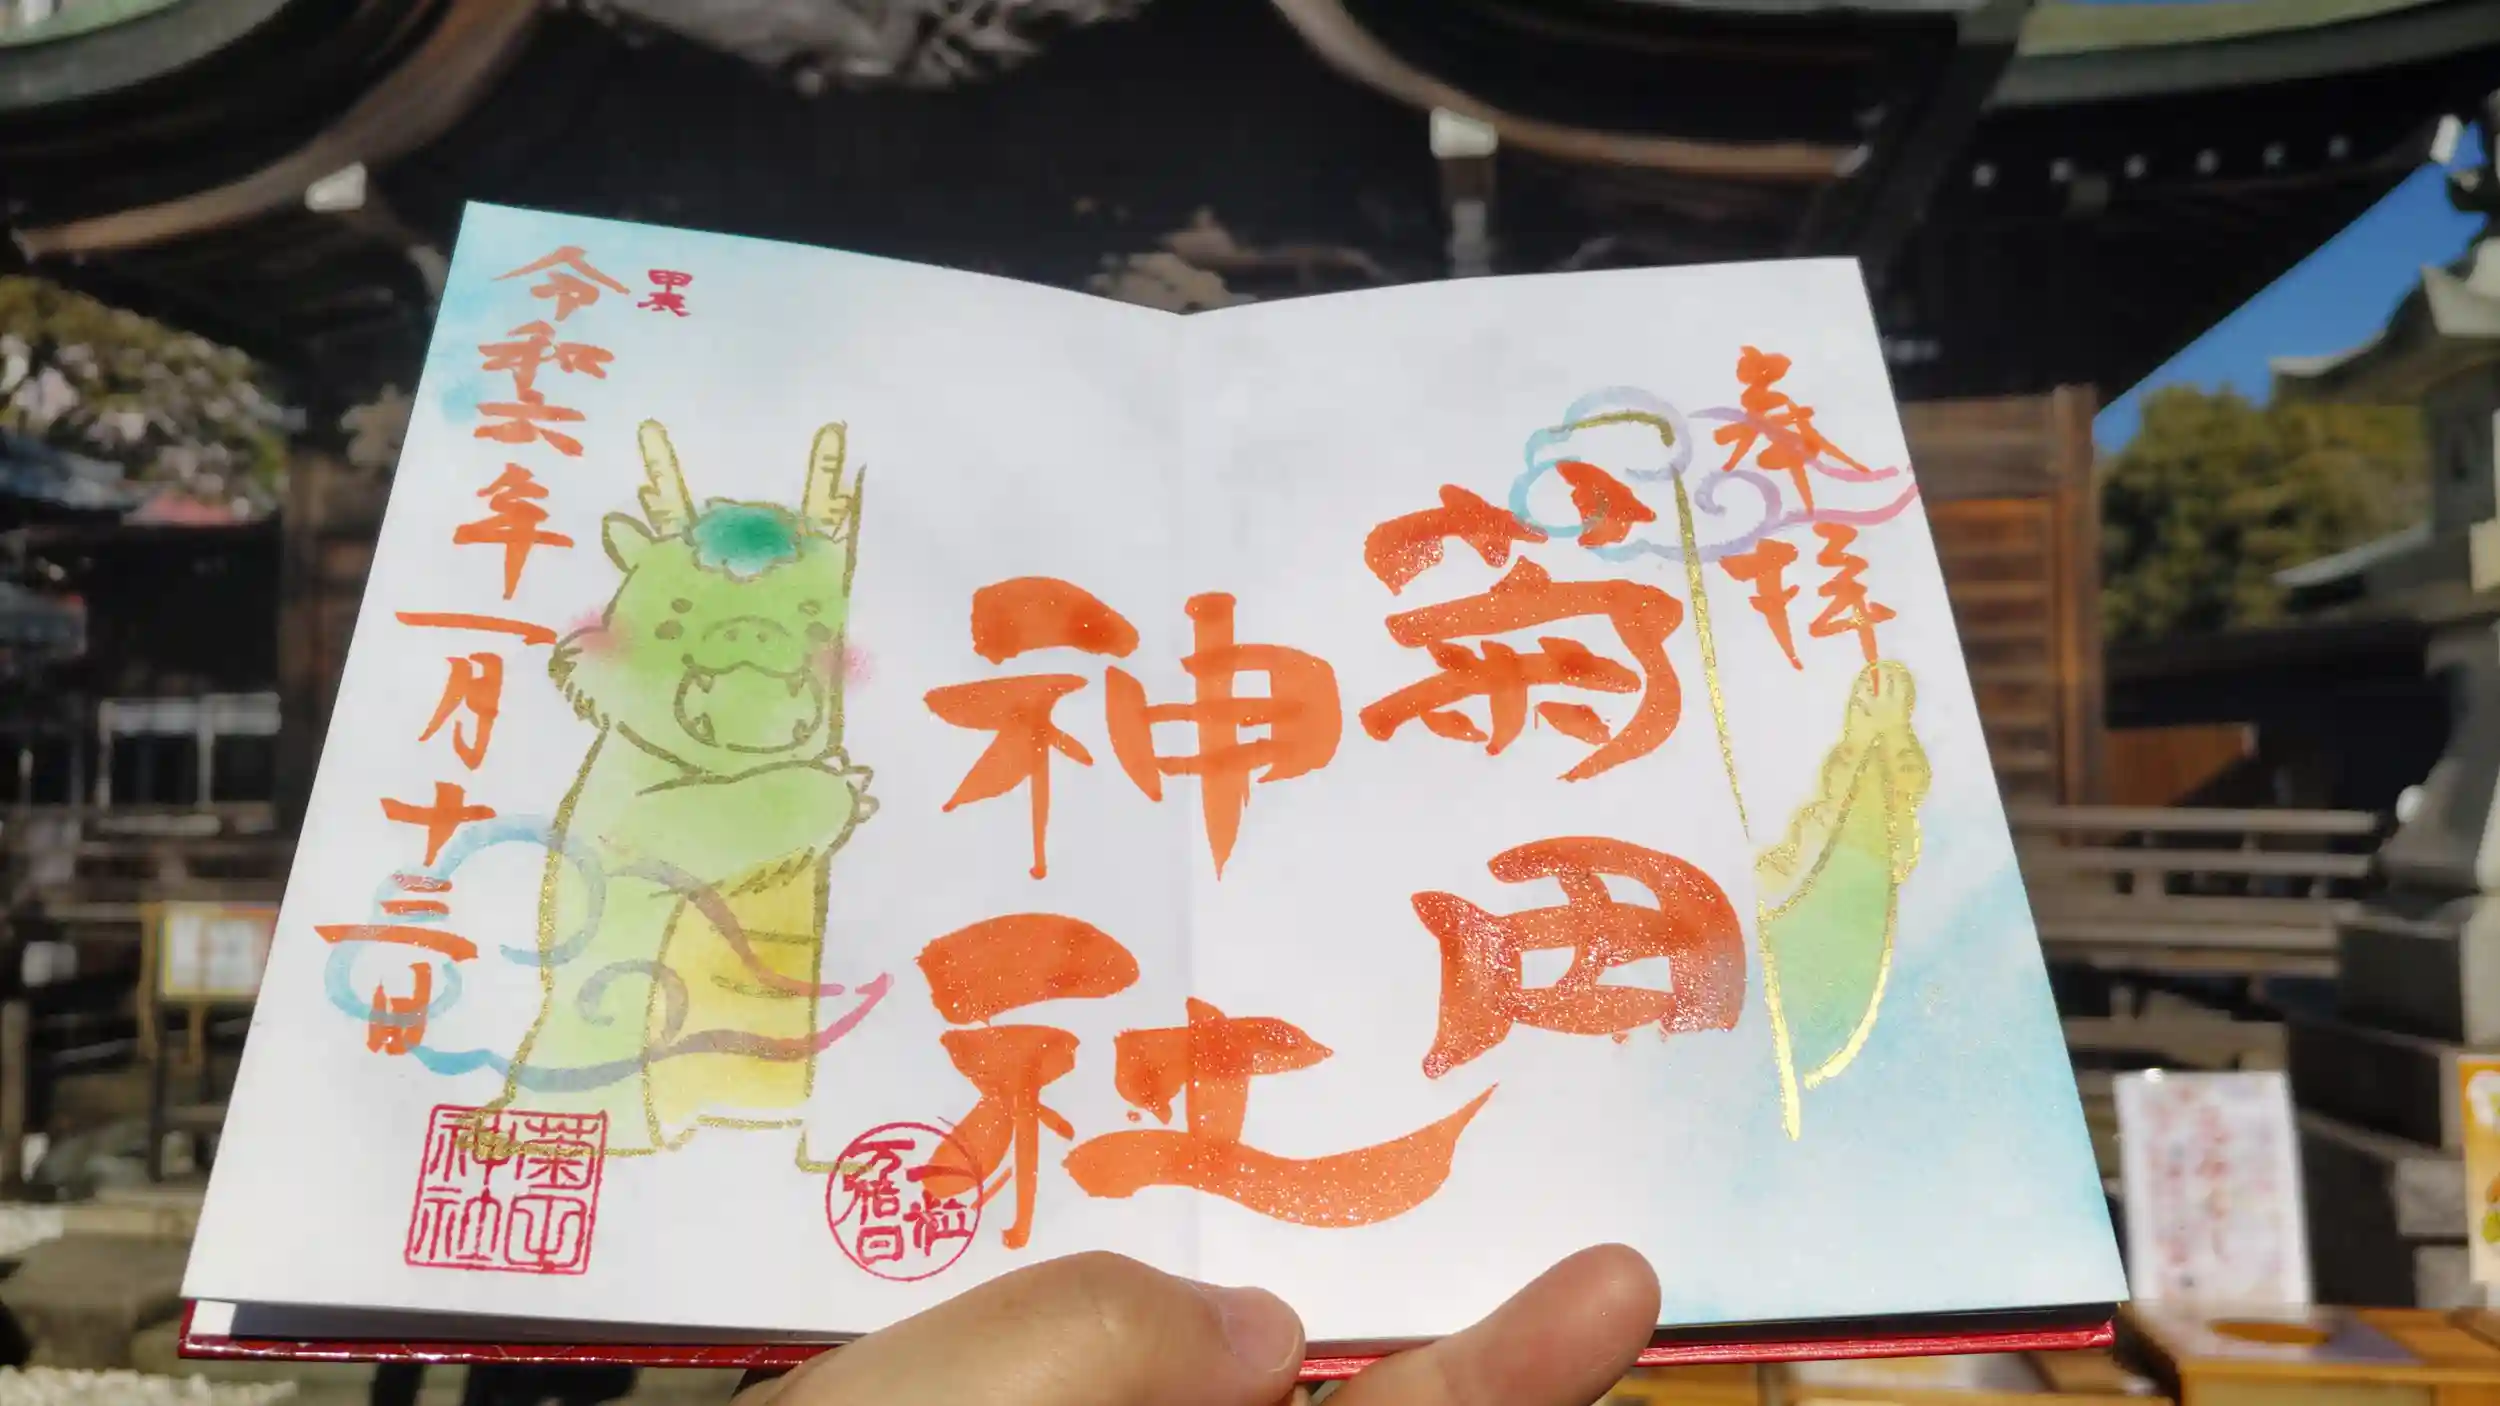 奉拝
菊田
神社
甲辰
令和六年一月十三日
一粒
万倍日
菊田
神社